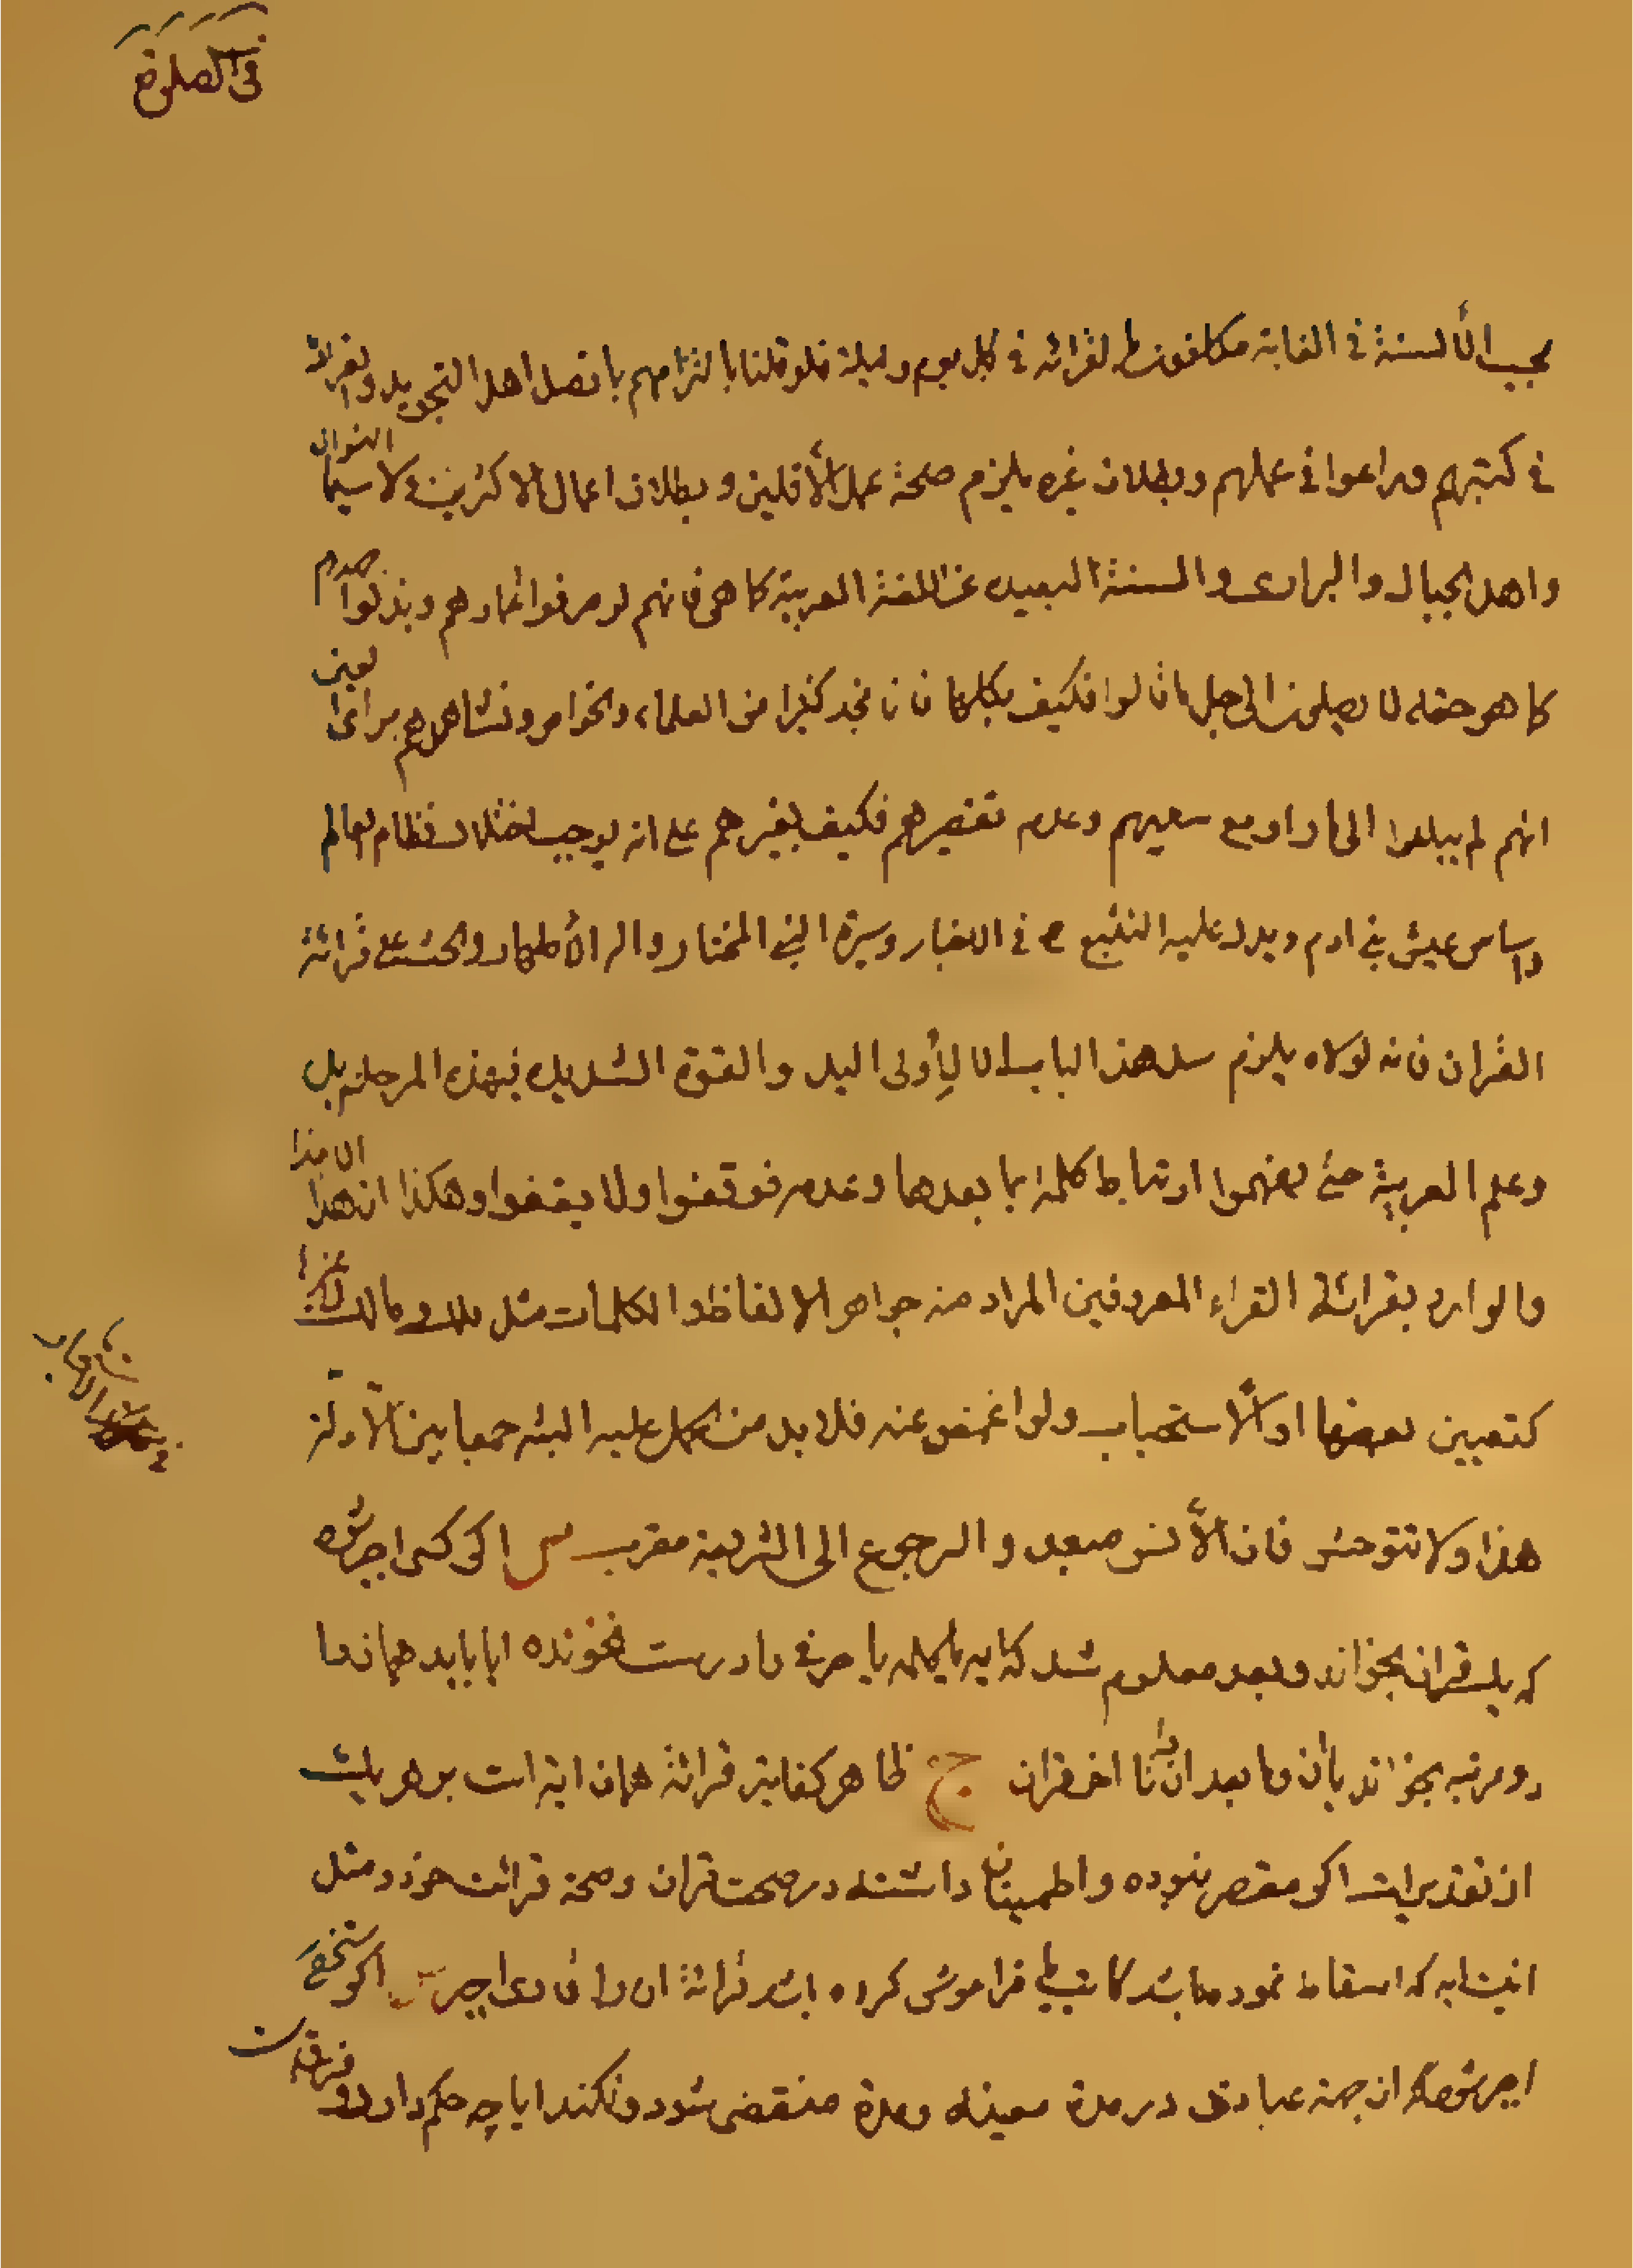 في الصلوة
بحسب الألسنة في الغاية مكلفون بالقرائة في كل يوم وليلة فلو قلنا بالتزامهم بما تصل اهل التجويد والقرائة
في كتبهم وراعوا في عملهم وبطلان غيره يلزم صحة عمل الأقلين وبطلان اعمال الاكثرين لا سيما النسوان
واهل الجبال والبراري والسنة البعيدة عن اللغة العربية كما هي فانهم لو صرفوا اعمارهم وبذلوا جهدهم
كما هو حقه لا يصلون الى جل ما قالوا فكيف بكلها فانا نجد كثيرا من العلماء والخواص ونشاهدهم براى العين
انهم لم يبلغوا الى ما راد مع سعيهم وعدم تقصيرهم فكيف بغيرهم على انه يوجب اختلال نظام العالم
واساس عيش بني ادم ويدل عليه التتبع في الاخبار وسيرة النبي المختار واله الأطهار والحث على قرائة
القران فانه لولاه يلزم سد هذا الباب الا لأولى اليد والقوة الشديدة في هذه المرحلة بل
وعلم العربية حتى يفهموا ارتباط كلمة بما بعدها وعدمه فوقفوا ولا يقفوا وهكذا ان هذا
والوارد بقرائة القراء المعروفين المراد منه جواهر الالفاظ والكلمات مثل ملك ومالك
كتعيين بعضها او الاستحباب ولو اغمض عنه فلا بد من الحمل عليه البتة جمعا بين الأدلة
هذا ولا تتوحش فان الأنس مبعد والرجوع الى الشريعة مقرب س اكر كسى اجير شود
كه يك قران بخواند وبعد معلوم شد كه ايه يا كلمه يا حرفى را درست نخونده ايا بايد همان را
دو مرتبه بخواند يا ان وما بعد ان را تا اخر قران ج ظاهر كفاية قرائة همان اية است بر هر يك
از تقديرات اكر مقصر نبوده واطمينان داشته در صحت قران وصحة قرائت خود ومثل
انست ايه كه اسقاط نموده باشد كاتب يا فراموش كرده باشد قرائة ان را قارى اجير س اكر شخصى
اجير شود از جهة عبادتى در مدة معينه ومدة منقضى شود ونكند ايا چه حكم دارد